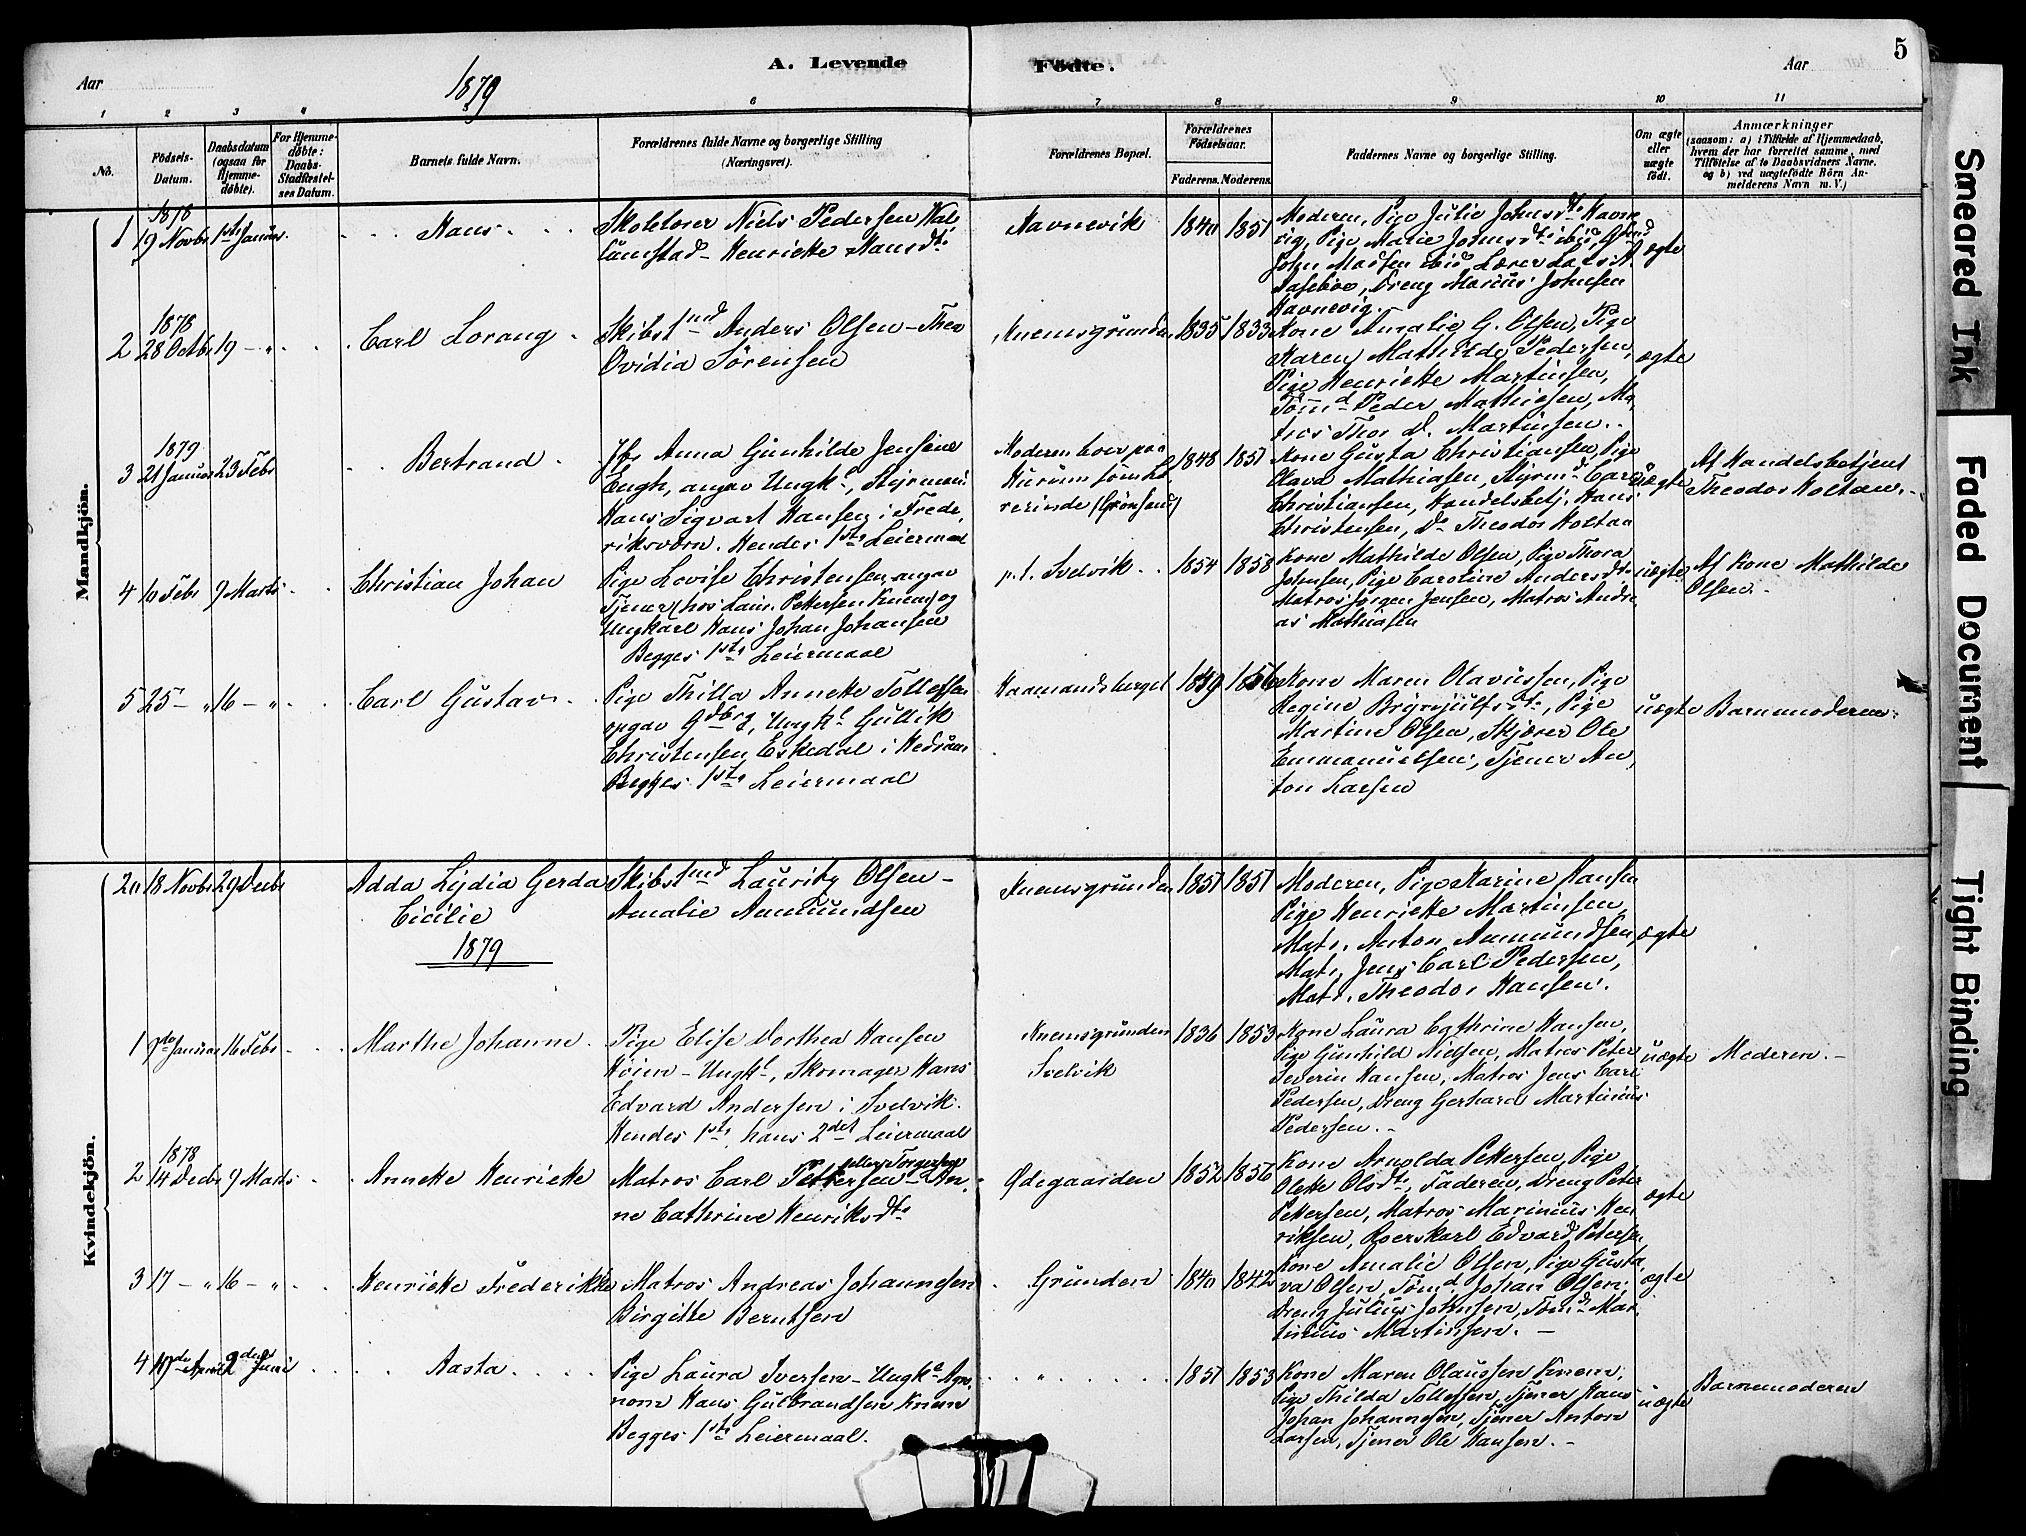 5
Aar
1879
A. Levende
Fødte.
Aar
1 2 3 4 6 7 8 9 10 11
No.
Fødsels-
Datum.
Daabsdatum
(ogsaa for
Hjemme-
døbte).
For Hjemme-
døbte:
Daabs-
Stadfæstel-
ses Datum.
Barnets fulde Navn.
Forældrenes fulde Navne og borgerlige Stilling
(Næringsvei).
Forældrenes Bopæl.
Forældrenes
Fødselsaar.
Faderens. Moderens.
Faddernes Navne og borgerlige Stilling.
Om ægte
eller
uægte
født.
Anmærkninger
(saasom: a) i Tilfælde af Hjemmedaab,
hvem der har forrettet samme, med
Tilføielse af to Daabsvidners Navne.
og b) ved uægtefødte Børn An-
melderens Navn m. V.)
Mandkjön.
1
1878
19 Novbr
1ste Januar
Hans
Skolelærer Niels Pedersen
Henriette Hansdtr
Havnevik
1840 1851
Moderen, Pige Julie Johnsdtr Havne
vig, Pige Marie Johnsdtr ibid,
John Madsen ibid Lærer
Dreng Marius Johnsen
Havnevig.
ægte
2
1878
28 Octbr 19 - "
Carl Lorang
Skibstmd Anders Olsen - Thea
Ovidia Sörensen
Knemsgrunden
1835 1833
Kone Amalie G. Olsen, Pige
Karen Mathilde Pedersen,
Pige Henriette Martinsen,
Tömmd Peder Mathiesen, Ma
tros Thor A. Martinsen.
ægte
3
1879
21 Januar 23 Febr
Bertrand
Anna Gunhilde Jensine
Engh, angav Ungk., Styrmand
Hans Sigvart Hansen i Frede,
riksværn. Hendes 1ste Leiermaal
Moderen bor paa
Hurum
(Grönsend)
1848 1851
Kone Gusta Christiansen, Pige
Olava Mathiasen, Styrmd Carl
Christiansen, Handelsbetj. Hans
Christensen, Do Theodor Holtan
uægte
Af Handelsbetjent
Theodor Holtan.
4 10 Febr 9 Marts
Christian Johan
Pige Lovise Christensen angav
Tjener hos Laur. Pettersen Knem og
Ungkarl Hans Johan Johansen
Begges 1ste Leiermaal
p.t. Svelvik
1854 1858
Kone Mathilde Olsen, Pige Thora
Johnsen, Pige Caroline Andersdtr
Matros Jörgen Jensen, Matros Andre
as Mathiasen
uægte
Af Kone Mathilde
Olsen.
5 25 - " 16 - "
Carl Gustav
Pige Thilla Anneke Tollefsen
opgav Gdbrg, Ungk. Gullik
Christensen Eskedal i Hedrum
Begges 1ste Leiermaal
Haamandsberget
1859 1856
Kone Maren Olavussen, Pige
Regine Brynjulfsdtr, Pige
Martine Olsen, Skjærer Ole
Emmanuelsen, Tjener An
ton Larsen
uægte
Barnemoderen.
Kvindekjön.
20 18 Novbr 29 Decbr
Adda Lydia Gerda
Cicilie
Skibstmd Lauritz Olsen -
Amalie Aamundsen
Knemsgrunden
1851 1851
Moderen, Pige Karine Hansen
Pige Henriette Martinsen,
Matr. Anton Aamundsen,
Matr. Jens Carl Pedersen,
Matr. Theodor Hansen.
ægte
1879
1 7de Januar 16 Febr
Marthe Johanne
Pige Elise Dorthea Hansen
Höien - Ungk., Skomager Hans
Edvard Andersen i Svelvik.
Hendes 1ste, hans 2det Leiermaal
Knemsgrunden
Svelvik
1836 1853
Kone Laura Cathrine Hansen,
Pige Gunhild Nielsen, Matros Peter
Severin Hansen, Matros Jens Carl
Pedersen, Dreng Gerhard Martinius
Pedersen.
uægte
Moderen.
2
1878
14 Decbr 9 Marts
Anneke Henriette
Matros Carl Pettersen eller Torgersen - An
ne Cathrine Henriksdtr
Ødegaarden
1852 1856
Kone Arnolda Pettersen, Pige
Olette Olsdtr, Faderen, Dreng Peter
Pettersen, Matros Marinius Hen
riksen, Roerskarl Edvard Petersen
ægte
3 17 - " 16 - "
Henriette Frederikke
Matros Andreas Johannesen
Birgitte Berntsen
Grunden
1840 1842
Kone Amalie Olsen, Pige Gusta
va Olsen, Tömmd Johan Olsen,
Dreng Julius Johnsen, Tömmd Mar
tinius Martinsen.
ægte
4 17de April 2den Juni
Aasta
Pige Laura Iversen - Ungk. Agro
nom Hans Gulbrandsen Knem
Begges 1ste Leiermaal.
"
1851 1853
Kone Maren Olaussen Knem,
Pige Thilda Tollefsen, Tjener Hans
Johan Johannesen, Tjener Anton
Larsen, Tjener Ole Hansen.
uægte
Barnemoderen
Smeared Ink
Faded Document
Tight Binding